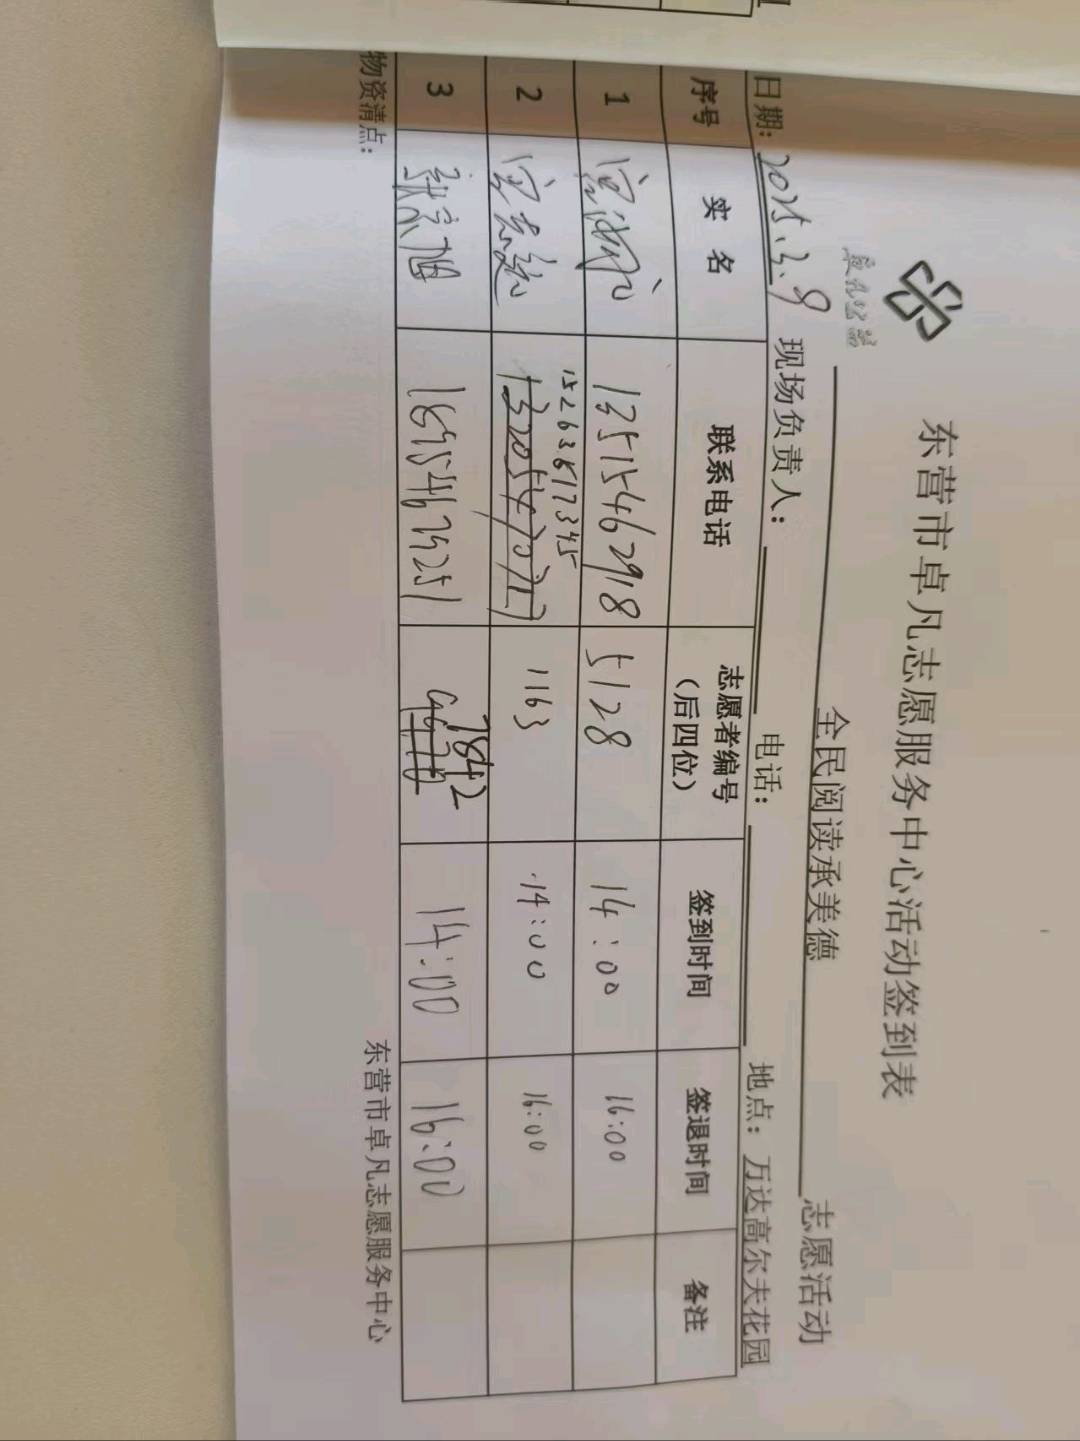 卓凡公益
东营市卓凡志愿服务中心活动签到表
全民阅读承美德 志愿活动
日期：2025.3.9 现场负责人： 电话： 地点：万达高尔夫花园
序号 实名 联系电话 志愿者编号（后四位） 签到时间 签退时间 备注
1 13515462918 5128 14:00 16:00
2 15263617345 1163 14:00 16:00
3 7842 14:00 16:00
物资清点：
东营市卓凡志愿服务中心